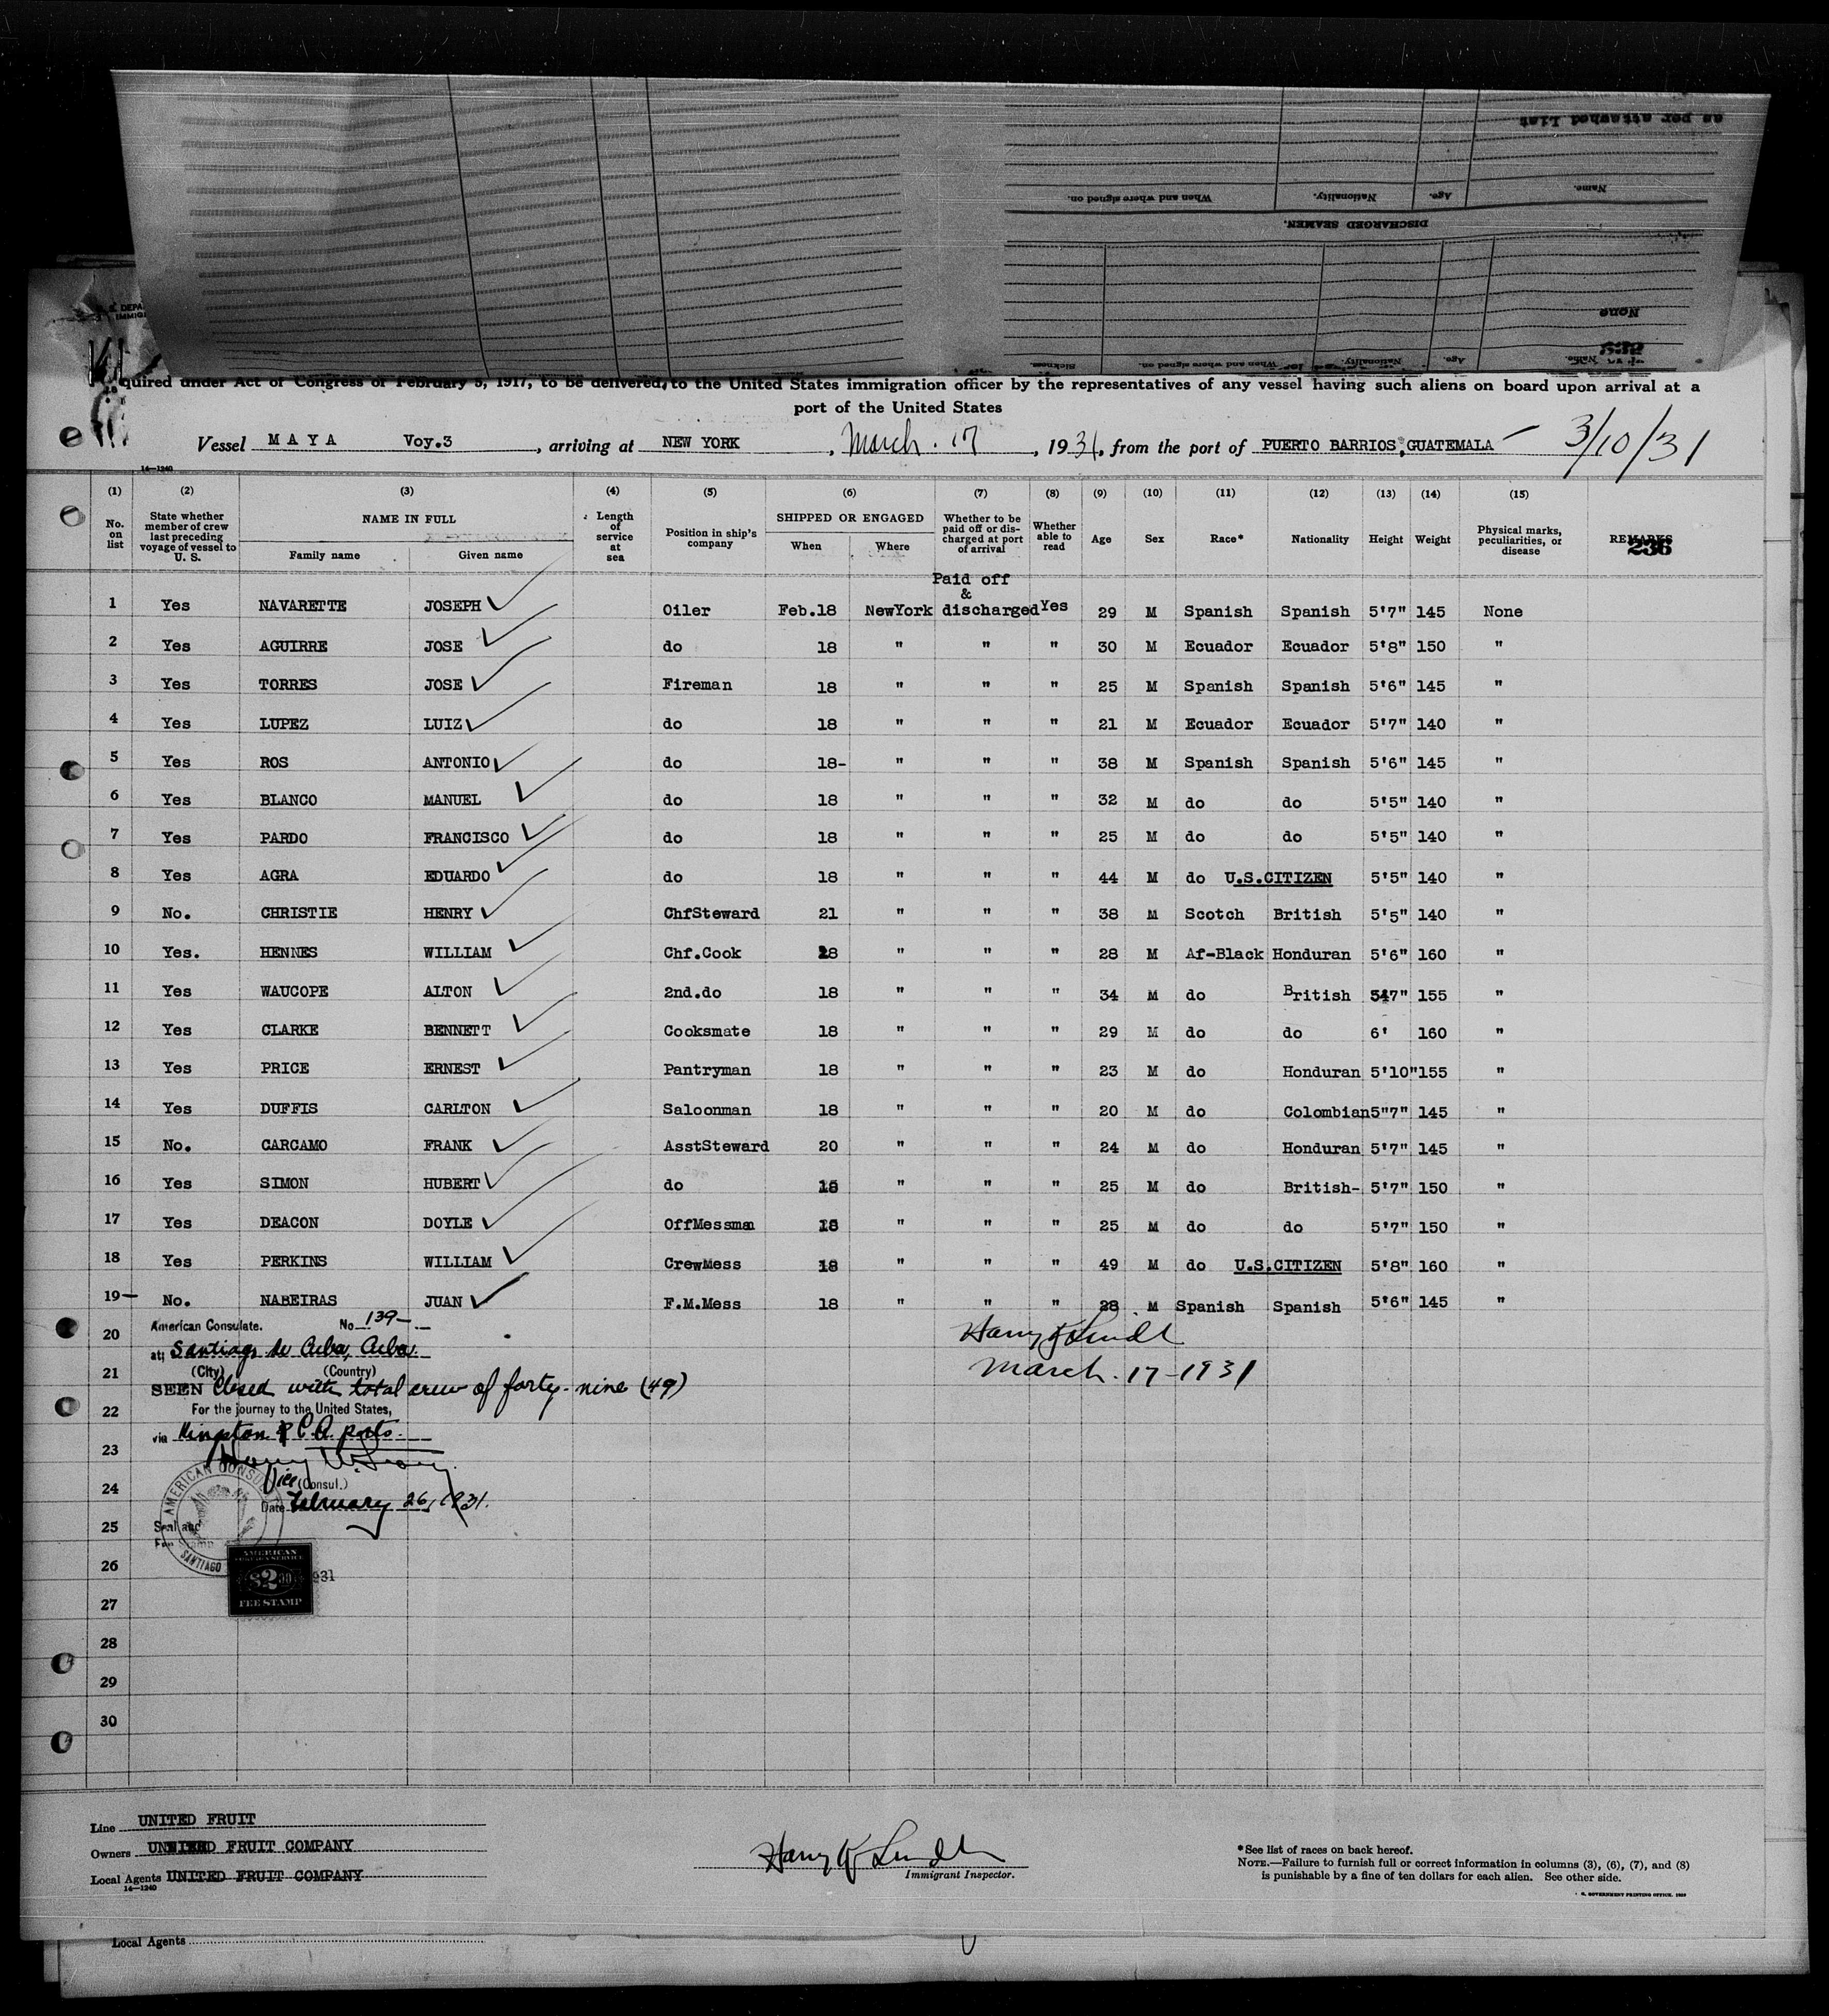 as per attached List
When and where signed on.
Nationality.
Age.
Name.
DISCHARGED SEAMEN.
None
Sickness.
When and where signed on.
Nationality.
Age.
Name.
quired under Act of Congress of February 5, 1917, to be delivered, to the United States immigration officer by the representatives of any vessel having such aliens on board upon arrival at a
port of the United States
Vessel MAYA Voy.3, arriving at NEW YORK, March. 17, 1931, from the port of PUERTO BARRIOS, GUATEMALA 3/10/31
14—1240
(1) (2) (3) (4) (5) (6) (7) (8) (9) (10) (11) (12) (13) (14) (15)
No. on list
State whether member of crew last preceding voyage of vessel to U. S.
NAME IN FULL
Family name
Given name
Length of service at sea
Position in ship's company
SHIPPED OR ENGAGED
When
Where
Whether to be paid off or discharged at port of arrival
Whether able to read
Age
Sex
Race*
Nationality
Height
Weight
Physical marks, peculiarities, or disease
REMARKS
236
Paid off
&
1 Yes NAVARETTE JOSEPH Oiler Feb.18 NewYork discharged Yes 29 M Spanish Spanish 5'7" 145 None
2 Yes AGUIRRE JOSE do 18 " " " 30 M Ecuador Ecuador 5'8" 150 "
3 Yes TORRES JOSE Fireman 18 " " " 25 M Spanish Spanish 5'6" 145 "
4 Yes LUPEZ LUIZ do 18 " " " 21 M Ecuador Ecuador 5'7" 140 "
5 Yes ROS ANTONIO do 18- " " " 38 M Spanish Spanish 5'6" 145 "
6 Yes BLANCO MANUEL do 18 " " " 32 M do do 5'5" 140 "
7 Yes PARDO FRANCISCO do 18 " " " 25 M do do 5'5" 140 "
8 Yes AGRA EDUARDO do 18 " " " 44 M do U.S.CITIZEN 5'5" 140 "
9 No. CHRISTIE HENRY ChfSteward 21 " " " 38 M Scotch British 5'5" 140 "
10 Yes. HENNES WILLIAM Chf.Cook 18 " " " 28 M Af-Black Honduran 5'6" 160 "
11 Yes WAUCOPE ALTON 2nd.do 18 " " " 34 M do British 5'7" 155 "
12 Yes CLARKE BENNETT Cooksmate 18 " " " 29 M do do 6' 160 "
13 Yes PRICE ERNEST Pantryman 18 " " " 23 M do Honduran 5'10" 155 "
14 Yes DUFFIS CARLTON Saloonman 18 " " " 20 M do Colombian 5"7" 145 "
15 No. CARCAMO FRANK AsstSteward 20 " " " 24 M do Honduran 5'7" 145 "
16 Yes SIMON HUBERT do 18 " " " 25 M do British- 5'7" 150 "
17 Yes DEACON DOYLE OffMessman 18 " " " 25 M do do 5'7" 150 "
18 Yes PERKINS WILLIAM CrewMess 18 " " " 49 M do U.S.CITIZEN 5'8" 160 "
19— No. NABEIRAS JUAN F.M.Mess 18 " " " 28 M Spanish Spanish 5'6" 145 "
American Consulate. No. 139-
20 at; Santiago de Cuba, Cuba. Harry K Lundh
(City) (Country)
21 SEEN Closed with total crew of forty-nine (49) March. 17-1931
22 For the journey to the United States,
via Kingston & C.A. ports.
23
24 Vice (Consul.)
Date February 26, 1931.
25 Seal and
Fee Stamp
AMERICAN CONSUL
SANTIAGO
26 AMERICAN
$2
FEE STAMP
931
27
28
29
30
Line UNITED FRUIT
Owners UNITED FRUIT COMPANY
Local Agents UNITED FRUIT COMPANY
14—1240
Harry K Lundh
Immigrant Inspector.
*See list of races on back hereof.
NOTE.—Failure to furnish full or correct information in columns (3), (6), (7), and (8)
is punishable by a fine of ten dollars for each alien. See other side.
GOVERNMENT PRINTING OFFICE. 1929
Local Agents